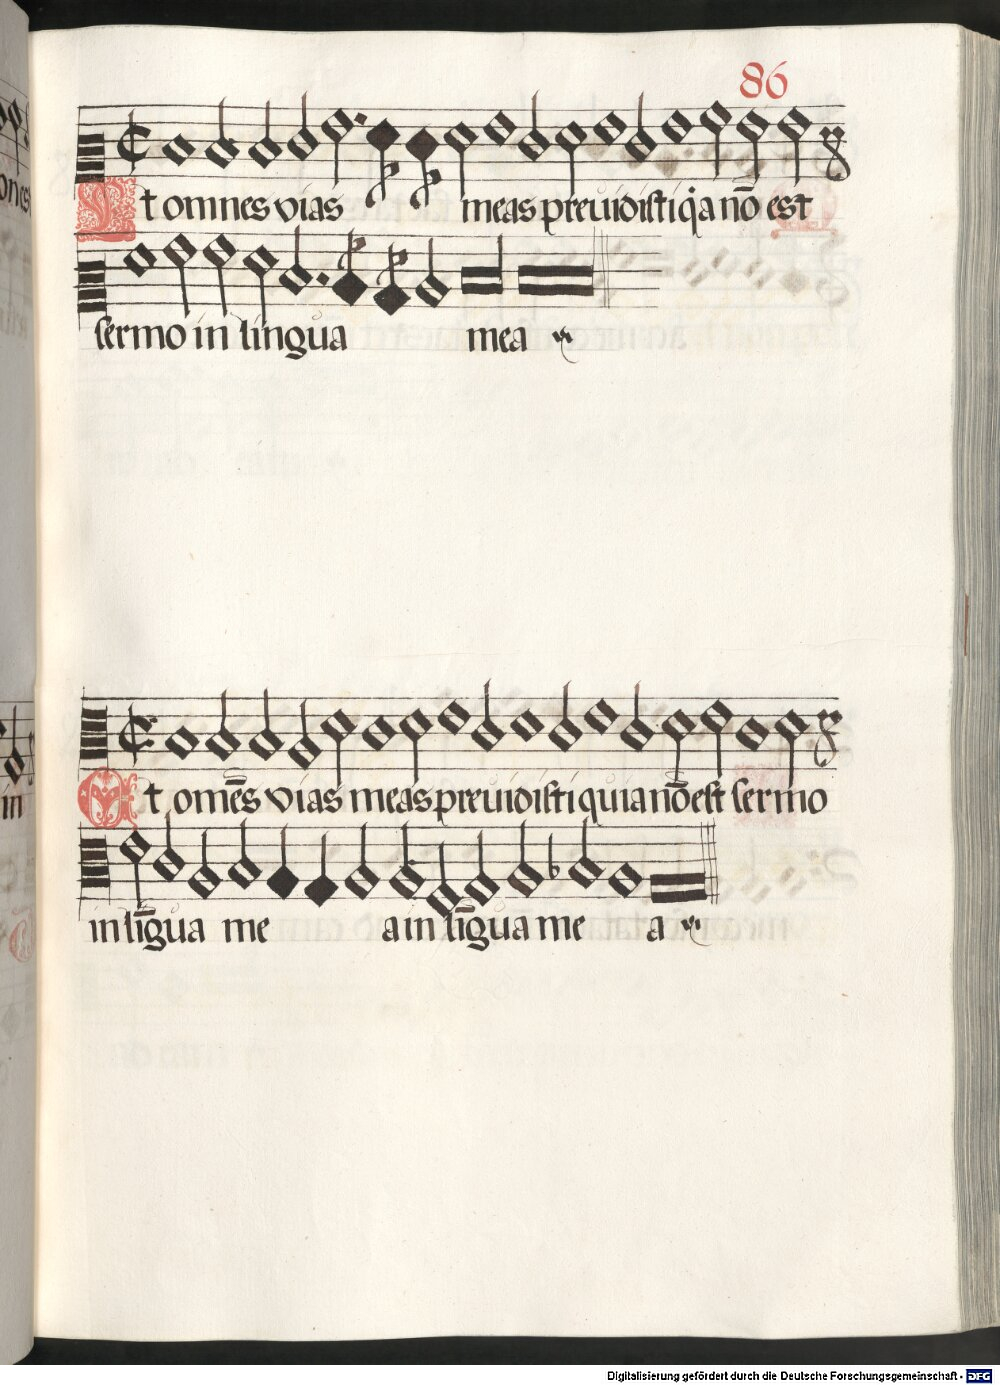 86
Et omnes vias meas preuidisti q̇a nō est
sermo in lingua mea
Et omēs vias meas preuidisti quia nō est sermo
in līgua me a in līgua me a
Digitalisierung gefördert durch die Deutsche Forschungsgemeinschaft - DFG